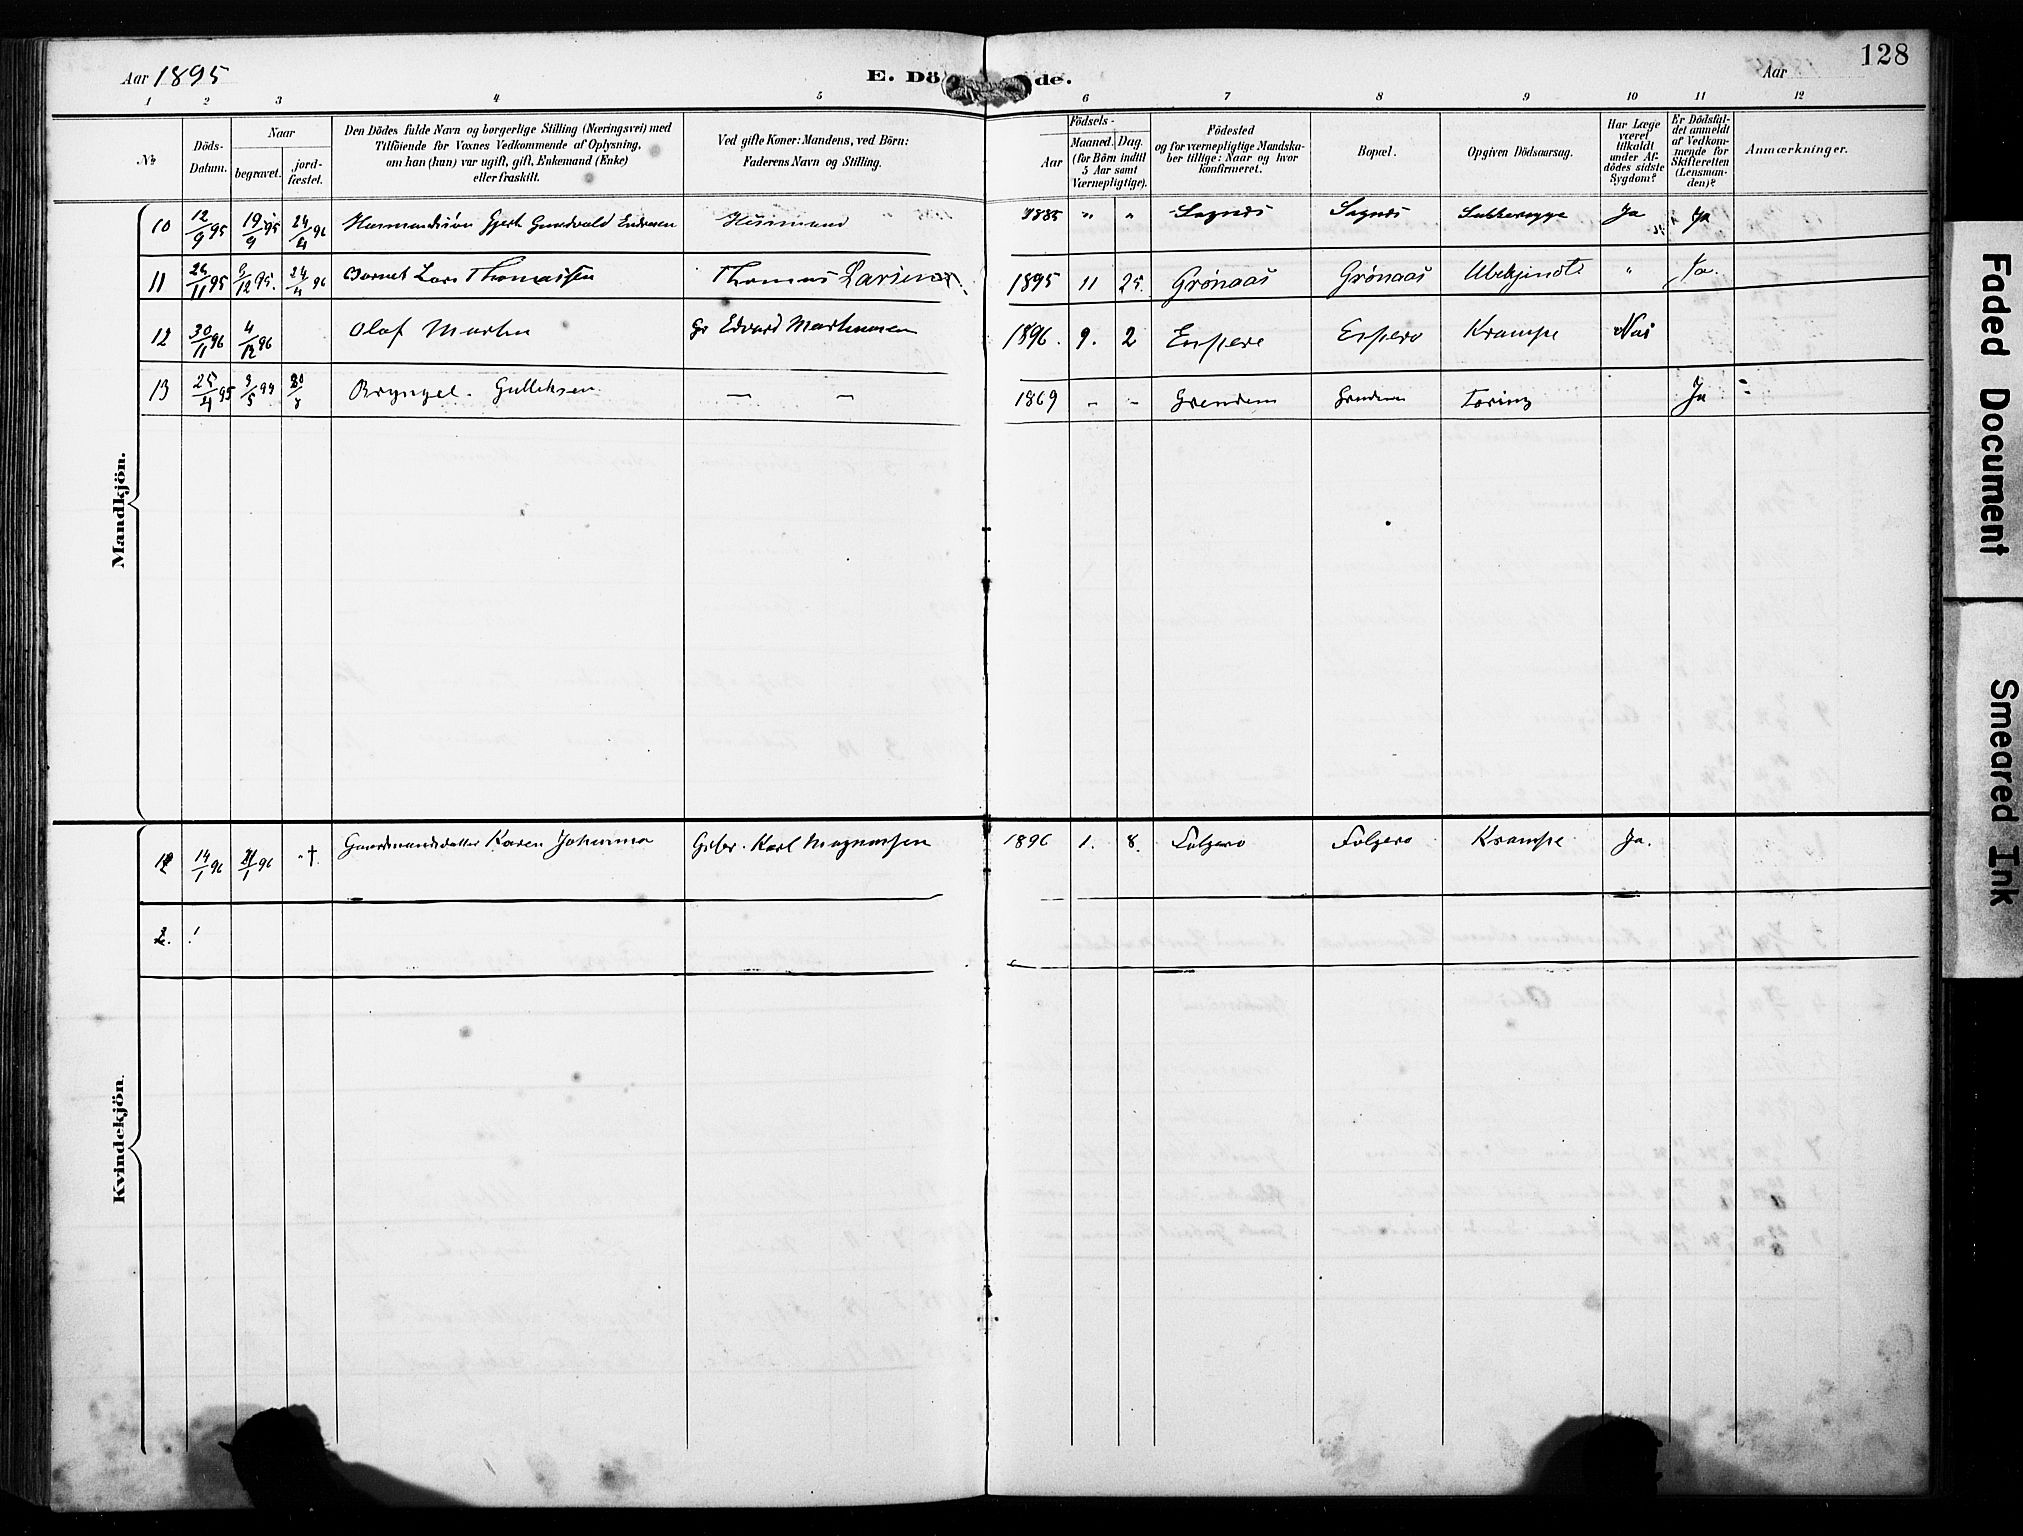 128
Aar 1895
E. Dö de.
Aar
1 2 3 4 5 6 7 8 9 10 11 12
No
Döds-Datum.
Naar
begravet.
jord-fæstet.
Den Dödes fulde Navn og borgerlige Stilling (Næringsvei) med
Tilföiende for Voxnes Vedkommende af Oplysning,
om han (hun) var ugift, gift, Enkemand (Enke)
eller fraskilt.
Ved gifte Koner: Mandens, ved Börn:
Faderens Navn og Stilling.
Födsels-
Aar
Maaned. Dag.
(for Börn indtil
5 Aar samt
Værnepligtige).
Födested
og for værnepligtige Mandska-
ber tillige: Naar og hvor
konfirmeret.
Bopæl.
Opgiven Dödsaarsag.
Har Læge
været
tilkaldt
under Af-
dödes sidste
Sygdom?
Er Dödsfal-
det anmeldt
af Vedkom-
mende for
Skifteretten
(Lensman-
den)?
Anmærkninger.
Mandkjön.
10 12/9 95 19/9 95 24/4 96 Gjert Gundvald Endresen Husmand 1885 " " Sognes Sognes Ja Ja
11 26/11 95 9/12 95. 24/4 96 Barnet Lars Thomassen Thomas Larsen 1895 11 25. Grönaas Grönaas Ubekjendt " Ja.
12 30/11 96 4/12 96 Olaf Martin Gr Edvard Martinusen 1896. 9. 2 Espere Espero Krampe Nei
13 25/4 95 3/5 Bryngel Gulleksen — — 1869 - - Grendem Grendem Tæring Ja
Kvindekjön.
14/1 96 21/1 96 † Gaardmandsdatter Karen Johanna Grbr. Karl Magnussen 1896 1. 8. Folgerø Folgerø Krampe Ja.
2.
Faded Document
Smeared Ink